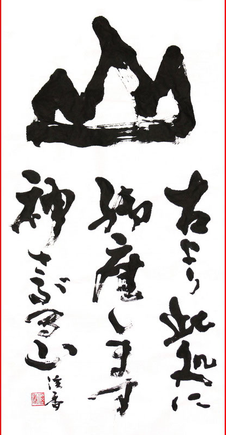 山
古より此処に
御座します
神さぶる山